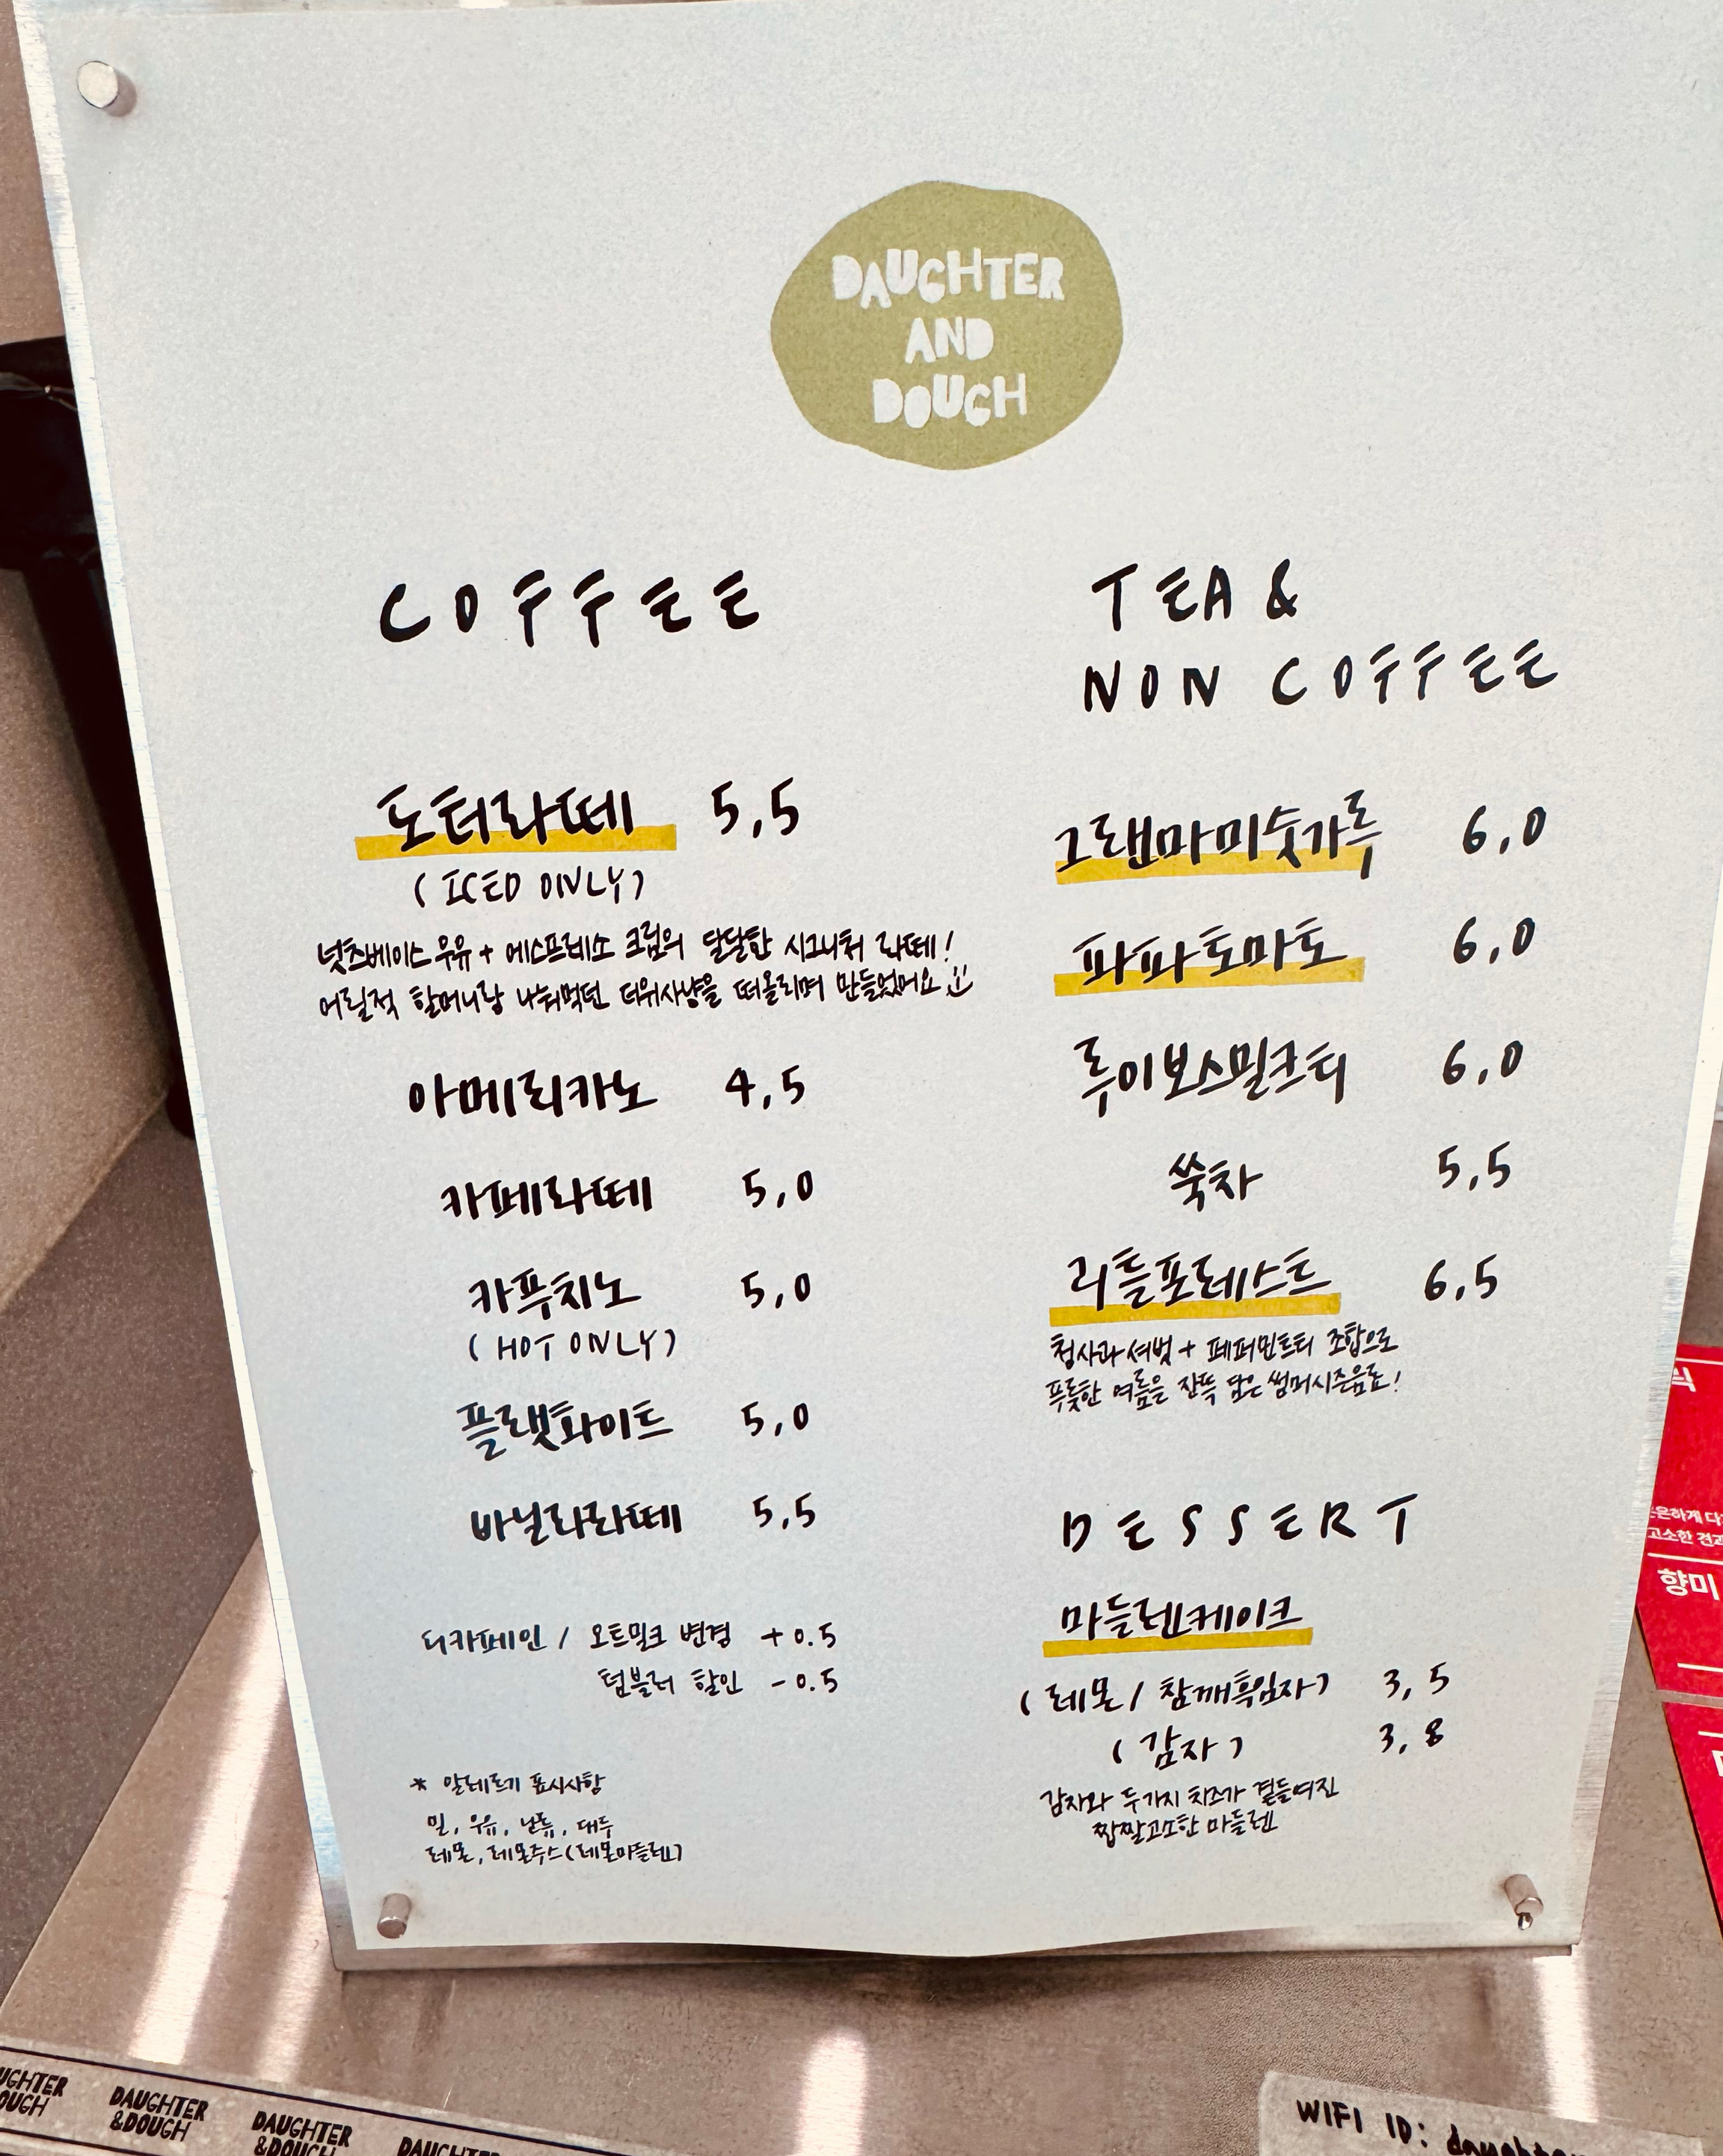 DAUGHTER
AND
DOUGH
COFFEE
도터라떼 5,5
(ICED ONLY)
넛츠베이스우유 + 에스프레소 크림의 달달한 시그니처 라떼!
어릴적 할머니랑 나눠먹던 더위사냥을 떠올리며 만들었어요
아메리카노 4,5
카페라떼 5,0
카푸치노 5,0
(HOT ONLY)
플랫화이트 5,0
바닐라라떼 5,5
디카페인 / 오트밀크 변경 +0.5
텀블러 할인 -0.5
* 알레르기 표시사항
밀, 우유, 난류, 대두
레몬, 레몬주스(레몬마들렌)
TEA &
NON COFFEE
그랜마미숫가루 6,0
파파토마토 6,0
루이보스밀크티 6,0
쑥차 5,5
리틀포레스트 6,5
청사과셔벗 + 페퍼민트티 조합으로
푸릇한 여름을 잔뜩 담은 썸머시즌음료!
DESSERT
마들렌케이크
(레몬/ 참깨흑임자) 3,5
(감자) 3,8
감자와 두가지 치즈가 곁들여진
짭짤고소한 마들렌
식
은은하게 다
고소한 견과
향미
UGHTER
OUGH
DAUGHTER
&DOUGH
DAUGHTER
&DOUGH
DAUGHTER
WIFI ID: daughter